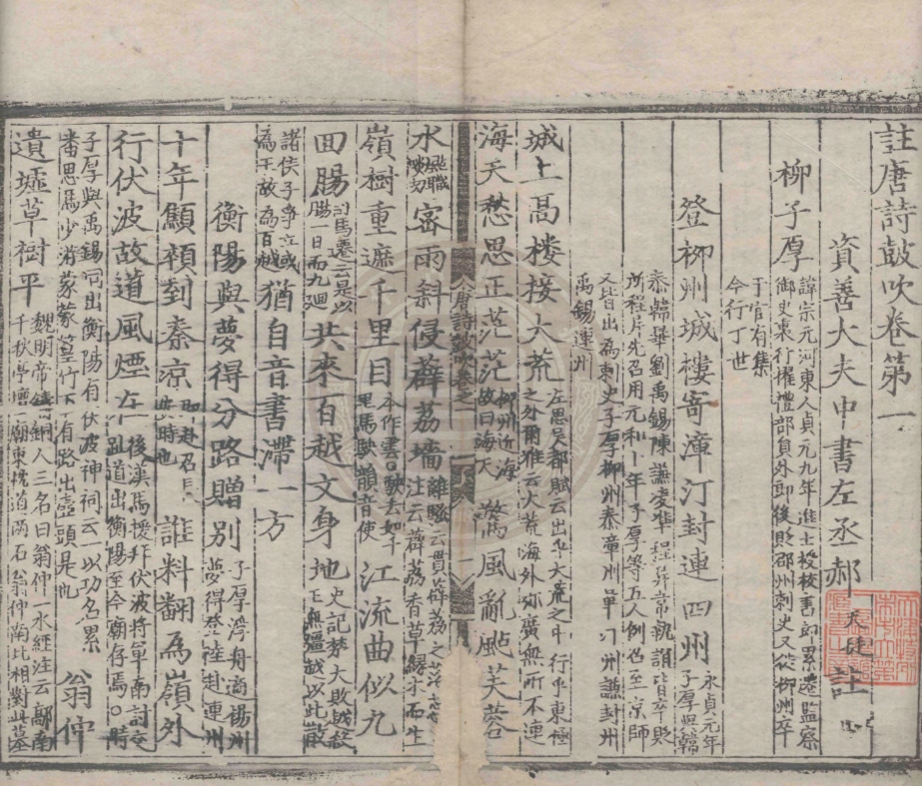 註唐詩鼓吹卷第一
資善大夫中書左丞郝天挺註
柳子厚 諱宗元河東人貞元九年進士授校書郎累遷監察
御史裏行擢禮部員外郎後貶邵州刺史又從柳州卒
于官有集
今行丁世
登柳州城樓寄漳汀封連四州 永貞元年
子厚與韓
泰韓曄劉禹錫陳謙凌準程异韋執誼皆卒貶
所程片先召用元和十年子厚等五人例召至京師
又皆出為刺史子厚柳州泰漳州曄汀州謙封州
禹錫連州
城上高樓接大荒 左思吳都賦云出乎大荒之中行乎東極
之外爾雅云大荒海外弥廣無所不連
海天愁思正茫茫 柳州近海
故曰海天 驚風亂颭芙蓉
水 密雨斜侵薜荔墻 離騷云貫薜荔之
注云薜荔香草緣木而生
嶺樹重遮千里目 江流曲似九
回腸 司馬遷云是以
腸一日而九廻 共來百越文身地 史記楚大敗越殺
王無彊越以此散
諸侯子爭立或
為王故為百越 猶自音書滯一方
衡陽與夢得分路贈別 子厚
夢得登陸赴連州
十年顦顇到秦京 誰料翻為嶺外
行伏波故道風煙在 後漢馬援拜伏波將軍南討交
趾道出衡陽至今廟存焉
子厚與禹錫同出衡陽有伏波神祠云以功名累
翁仲
遺墟草樹平 魏明帝鑄銅人三名曰翁仲一水經注云鄗南
千秋亭壇廟東枕道兩石翁仲南北相對